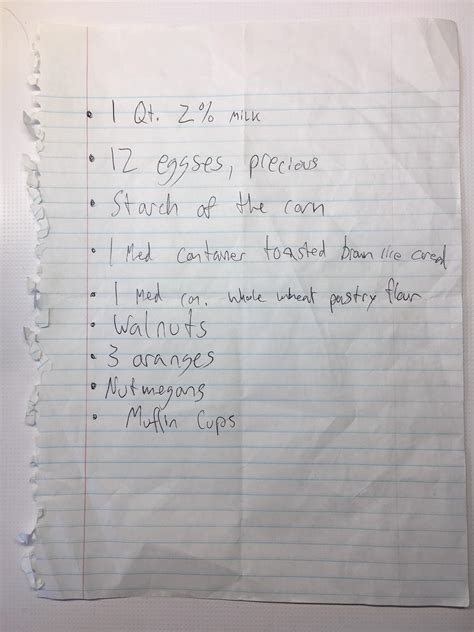 • 1 Qt. 2% milk
• 12 eggses, precious
• Starch of the corn
• 1 Med container toasted brown rice cereal
• 1 Med con. whole wheat pastry flour
• Walnuts
• 3 oranges
• Nutmegans
• Muffin Cups